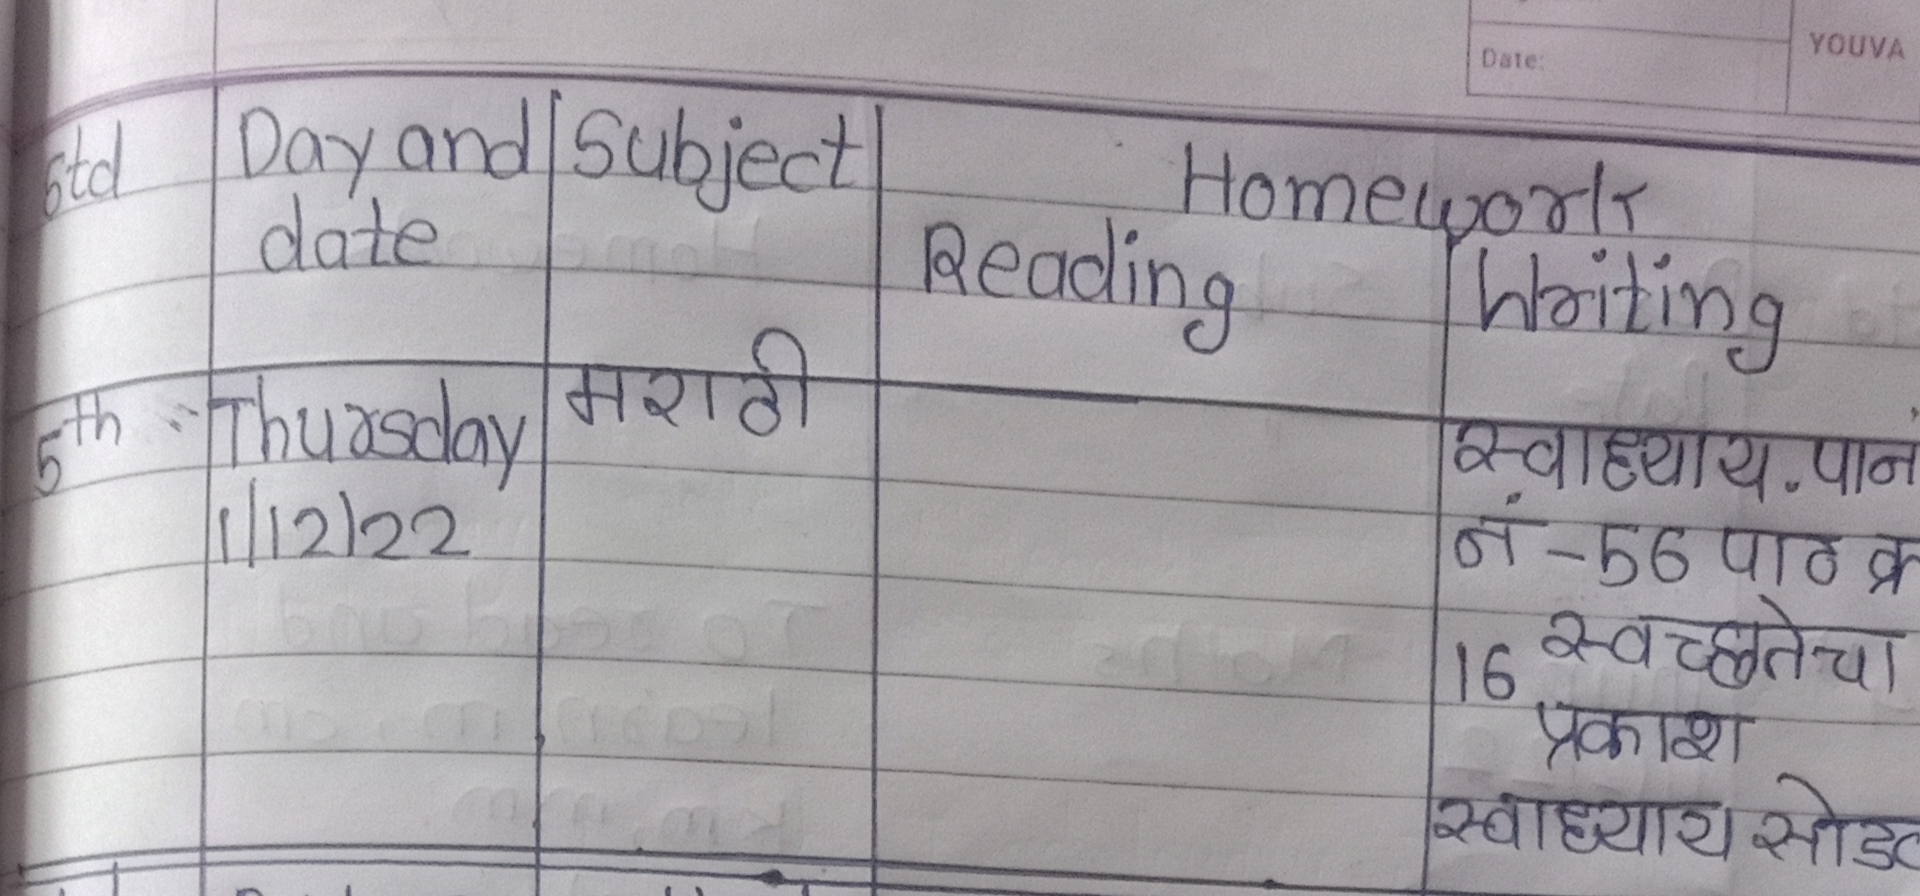 Date:
YOUVA
Std Day and Subject Homework
date Reading Writing
5th Thursday मराठी
स्वाध्याय. पान
1/12/22
नं - 56 पाठ क्र
16 स्वच्छतेचा
प्रकाश
स्वाध्याय